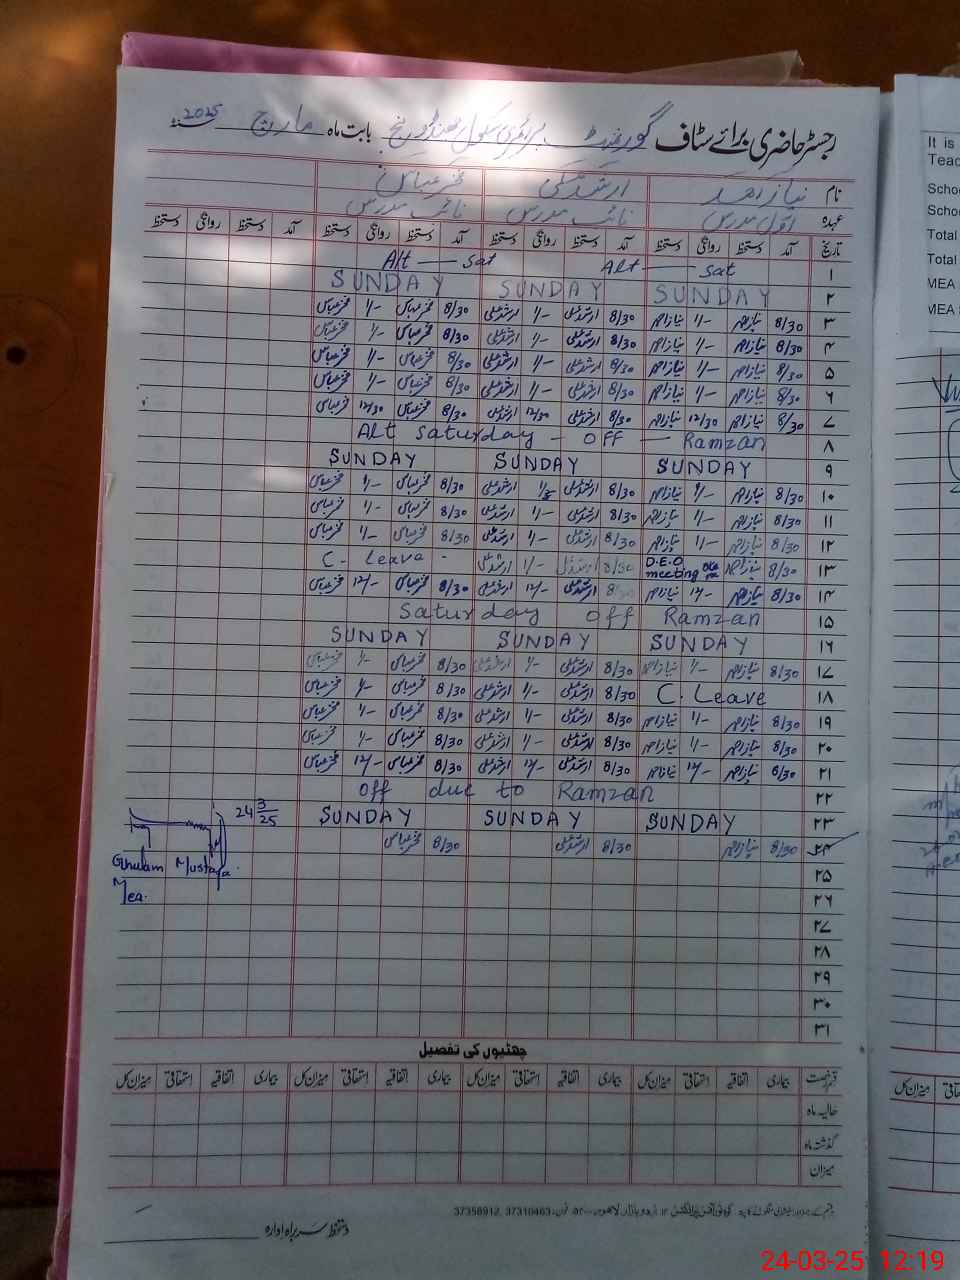 رجسٹر حاضری برائے سٹاف گورنمنٹ پرائمری سکول بابت ماہ مارچ 2025
نام نیاز احمد ارشد علی فخر عباس
عہدہ اول مدرس نائب مدرس نائب مدرس
تاریخ آمد دستخط روانگی دستخط آمد دستخط روانگی دستخط آمد دستخط روانگی دستخط آمد دستخط روانگی دستخط
۱ Alt — Sat Alt — Sat
۲ SUNDAY SUNDAY SUNDAY
۳ 8/30 نیاز احمد 1/- نیاز احمد 8/30 ارشد علی 1/- ارشد علی 8/30 فخر عباس 1/- فخر عباس
۴ 8/30 نیاز احمد 1/- نیاز احمد 8/30 ارشد علی 1/- ارشد علی 8/30 فخر عباس 1/- فخر عباس
۵ 8/30 نیاز احمد 1/- نیاز احمد 8/30 ارشد علی 1/- ارشد علی 8/30 فخر عباس 1/- فخر عباس
۶ 8/30 نیاز احمد 1/- نیاز احمد 8/30 ارشد علی 1/- ارشد علی 8/30 فخر عباس 1/- فخر عباس
۷ 8/30 نیاز احمد 12/30 نیاز احمد 8/30 ارشد علی 12/30 ارشد علی 8/30 فخر عباس 12/30 فخر عباس
۸ Alt Saturday - OFF — Ramzan
۹ SUNDAY SUNDAY SUNDAY
۱۰ 8/30 نیاز احمد 1/- نیاز احمد 8/30 ارشد علی ارشد علی 8/30 فخر عباس 1/- فخر عباس
۱۱ 8/30 نیاز احمد 1/- نیاز احمد 8/30 ارشد علی 1/- ارشد علی 8/30 فخر عباس 1/- فخر عباس
۱۲ 8/30 نیاز احمد 1/- نیاز احمد 8/30 ارشد علی 1/- ارشد علی 8/30 فخر عباس 1/- فخر عباس
۱۳ 8/30 نیاز احمد D.E.O meeting 8/30 ارشد علی 1/- ارشد علی C. Leave -
۱۴ 8/30 نیاز احمد 12/- نیاز احمد 8/30 ارشد علی 12/- ارشد علی 8/30 فخر عباس 12/- فخر عباس
۱۵ Saturday off Ramzan
۱۶ SUNDAY SUNDAY SUNDAY
۱۷ 8/30 نیاز احمد 1/- نیاز احمد 8/30 ارشد علی 1/- ارشد علی 8/30 فخر عباس 1/- فخر عباس
۱۸ C. Leave 8/30 ارشد علی 1/- ارشد علی 8/30 فخر عباس 1/- فخر عباس
۱۹ 8/30 نیاز احمد 1/- نیاز احمد 8/30 ارشد علی 1/- ارشد علی 8/30 فخر عباس 1/- فخر عباس
۲۰ 8/30 نیاز احمد 1/- نیاز احمد 8/30 ارشد علی 1/- ارشد علی 8/30 فخر عباس 1/- فخر عباس
۲۱ 8/30 نیاز احمد 12/- نیاز احمد 8/30 ارشد علی 12/- ارشد علی 8/30 فخر عباس 12/- فخر عباس
۲۲ Off due to Ramzan
۲۳ SUNDAY SUNDAY SUNDAY
24 3/25
۲۴ 8/30 نیاز احمد 8/30 ارشد علی 8/30 فخر عباس
Ghulam Mustafa
Mea.
۲۵
۲۶
۲۷
۲۸
۲۹
۳۰
۳۱
چھٹیوں کی تفصیل
قسم رخصت بیماری اتفاقیہ استحقاقی میزان کل بیماری اتفاقیہ استحقاقی میزان کل بیماری اتفاقیہ استحقاقی میزان کل بیماری اتفاقیہ استحقاقی میزان کل
حالیہ ماہ
گذشتہ ماہ
میزان
اردو بازار لاہور فون: 37310463, 37358912
دستخط سربراہ ادارہ
It is
Teac
Schoo
Schoo
Total
Total
MEA
MEA
میزان کل
24-03-25 12:19